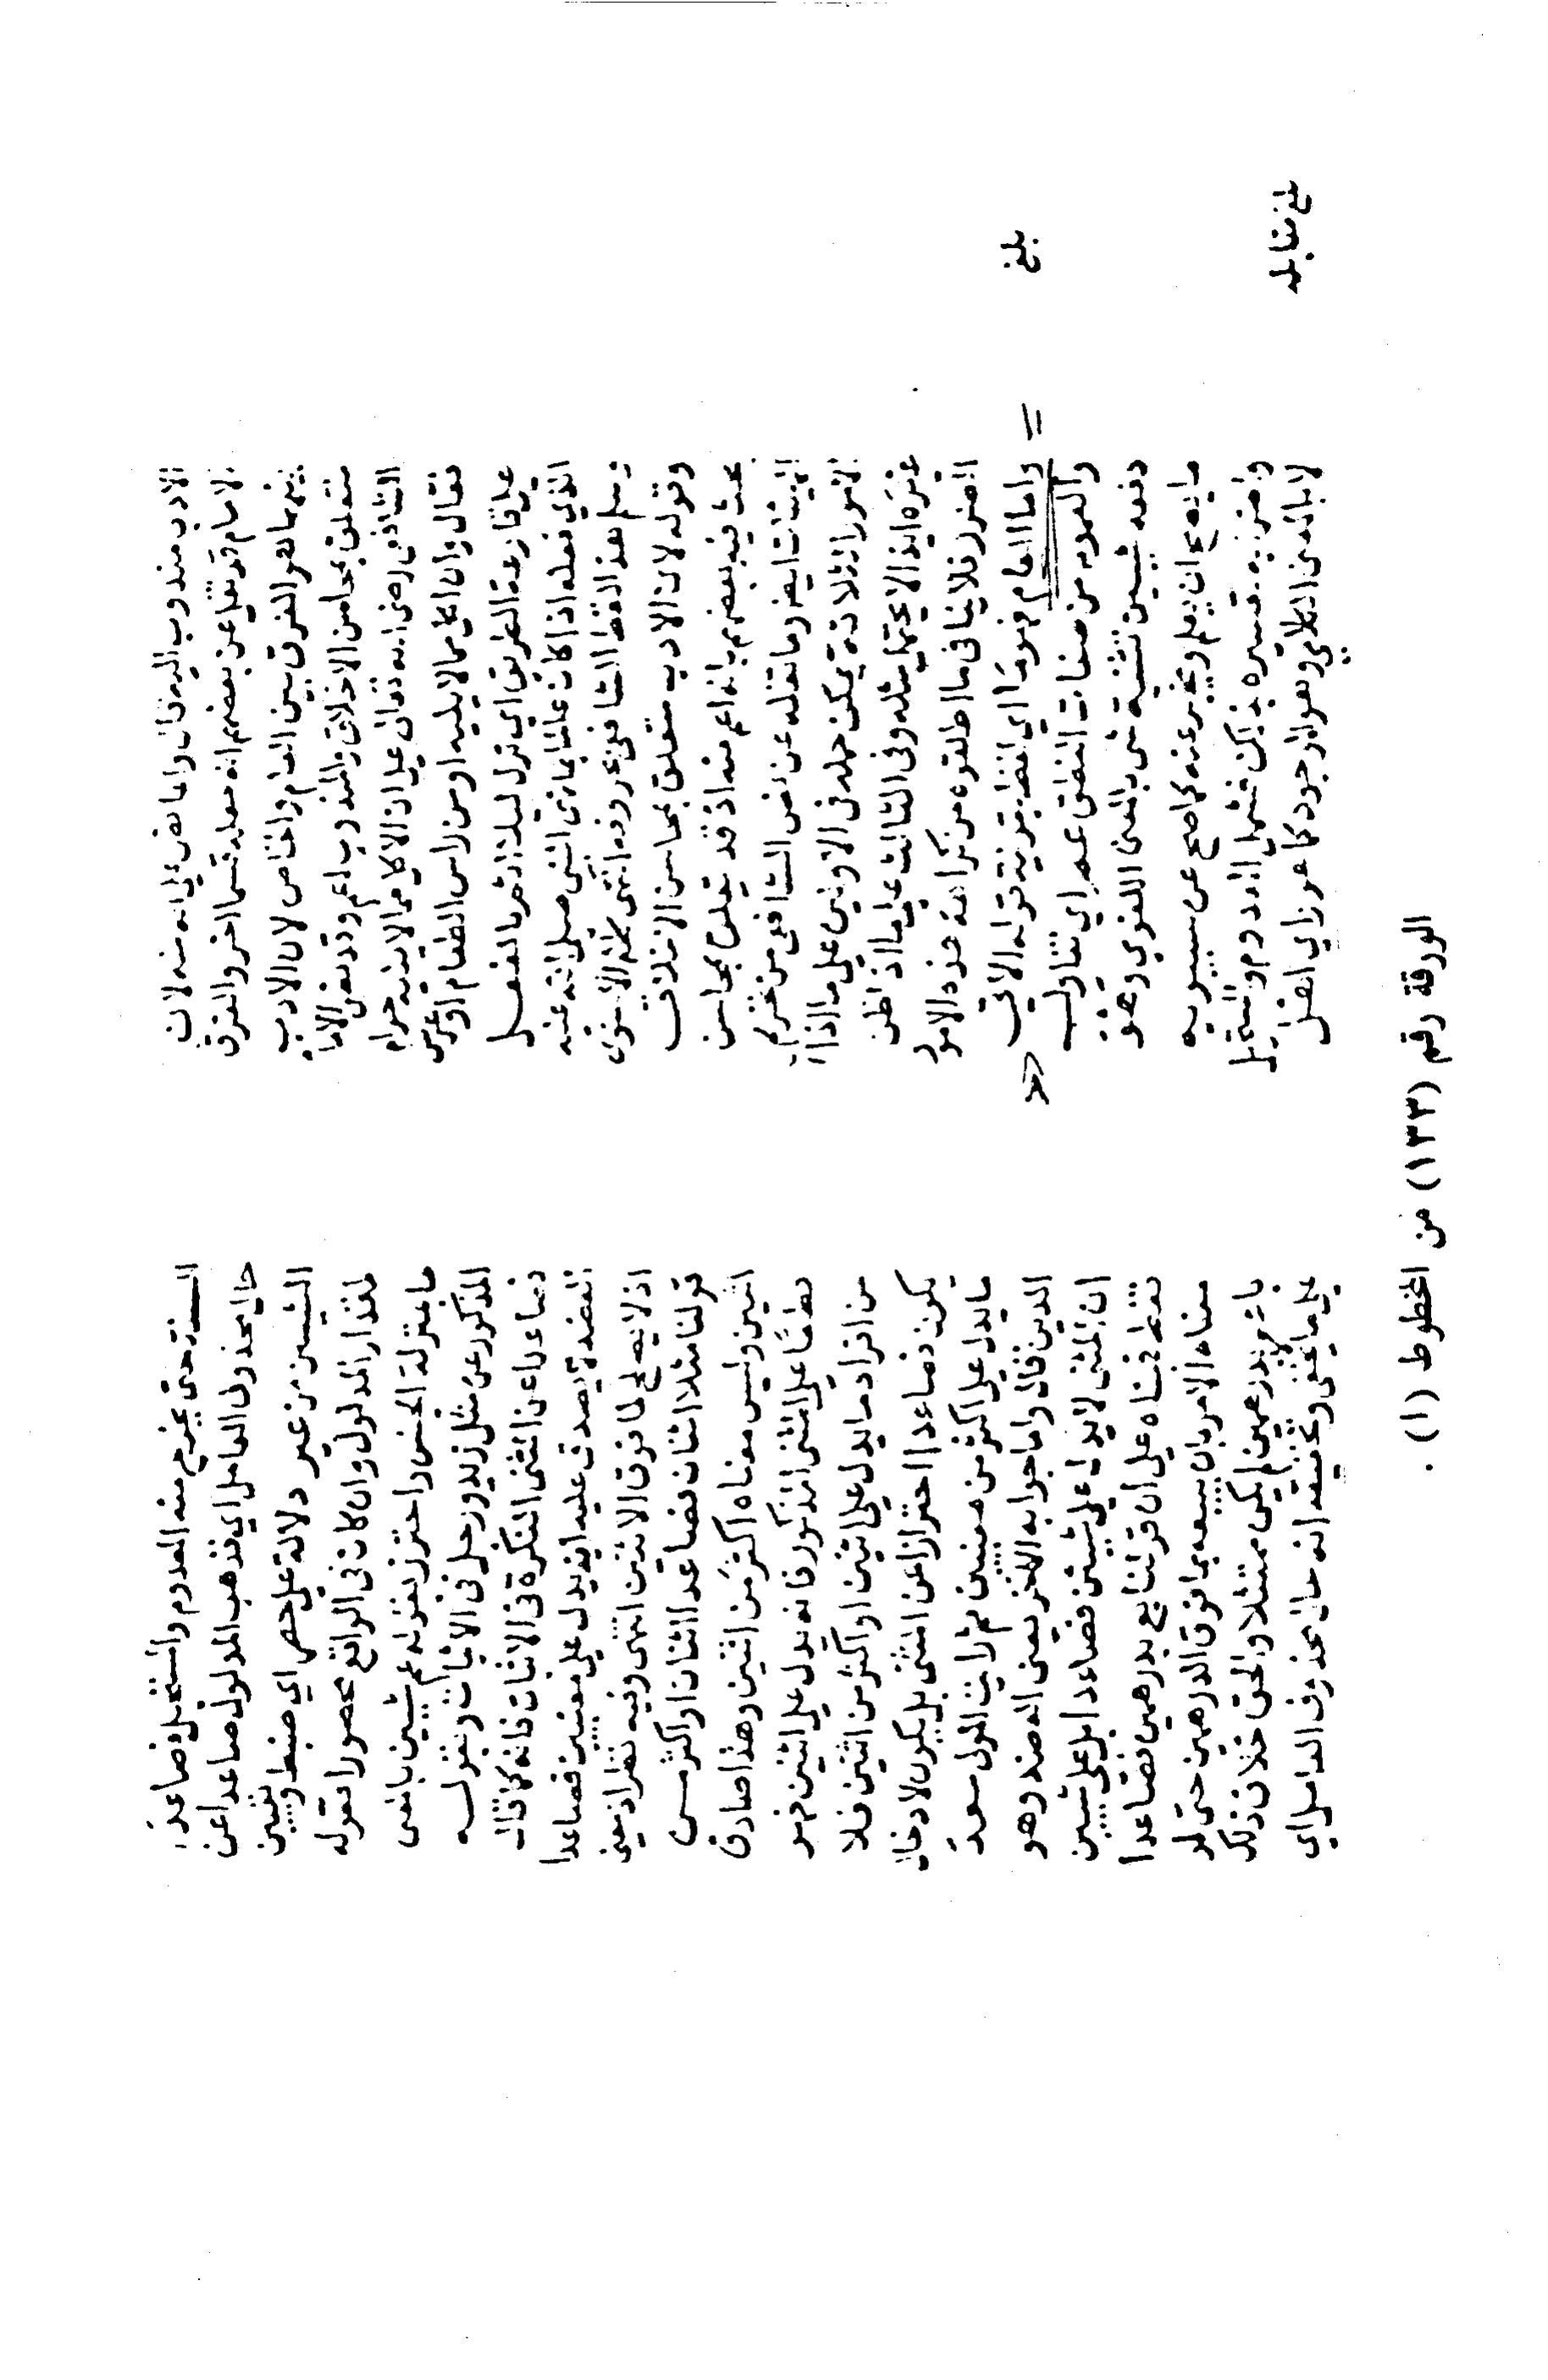 الادب مندوب اليه قال وانما نص على انه منه لان
الامام قد نقل عن بعضهم انه معدود قسما اخر والفرق
بينهما هو الفرق بين العام والخاص لان الادب
متعلق بمحاسن الاخلاق والمندوب اعم وقد نص الامام
الشافعي رضي الله تعالى على ان الاكل مما لا يليه حرام
فقال وان اكل مما لا يليه او من راس الطعام او عرس
على قارعة الطريق اي نزل ليلا اثم بالفعل
الذي فعله اذا كان عالما بما نهى النبي صلى الله عنه
وسلم هذا لفظ الشافعي بحروفه انتهى كلام الاسنوي
وقوله لان الادب متعلق بمحاسن الاخلاق
بحث فيه بعضهم بانه اعم منه اذ قد يتعلق بمحاسن
الهيئات ايضا وما نقله عن نص الشافعي من تحريم
الامور الثلاثة يمكن حمله في الاولين على ما اذا
غيره ايذا لا يحتمل مثله وفي الثالث على ما اذا ظن
الضرر فلا ينافي ما اطلقوه من كراهة هذه الامور
واما العام فهو ما اي لفظ بقرينة قوله الاتي
بلغ
والعموم من صفات النطق عم اي تناول
دفعه شيئين تثنية شي بالمعنى اللغوي وهو
ما يصح ان يعلم ويخبر عنه كما صح عن سيبويه
تفسيره بذلك فشمل المعدوم والمستحيل
لا بالمعنى الكلامي وهو الموجود كما هو راي اهل
بلغ مقابله
السنة حتى يخرج منه المعدوم والمستحيل فصاعدا
حال محذوف العامل اي فذهب المدلول صاعدا عن
الشيئين من غير دلالة على حصر اي ضبط وتعيين
لمقدار المدلول وان كان في الواقع محصورا فقوله
ما بمنزلة الجنس واحترز بقوله عم شيئين بالمعنى
المذكور عن مثل زيد ورجل في الاثبات وبقوله
فصاعدا عن المثنى النكرة في الاثبات فانه كما قال
العضد لا يصدق عليه انه يدل على معنيين فصاعدا
اذ لا يصلح لما فوق الاثنين انتهى وفيه نظر اذ معنى
قولنا مثلا اثنان فصاعدا اثنان او اكثر من
اثنين وليس معناه اكثر من اثنين وهذا صادق
قطعا على المثنى المذكور فانه يدل على اثنين فهو
من افراد ما يدل على اثنين او اكثر من اثنين فلا
يكون فصاعدا احترازا عن المثنى بل يكون لادخال
ما يدل على اكثر من معنيين ثم رايت المولى سعد
الدين قال واما جوابه الاخر يعني العضد وهو
ان المثنى لا يدل على شيئين فصاعدا بل على شيئين
فقط فمبناه على ان قولنا بع بدرهمين فصاعدا
معناه الامر بان يبيعه بما فوق الدرهمين حتى لو
باعه بدرهمين لم يكن ممتثلا والحق خلاف ذلك
على ما لا يخفى وتحقيقه انه حال محذوف العامل اي
الورقة رقم (١٣٣) من المخطوط (أ) .